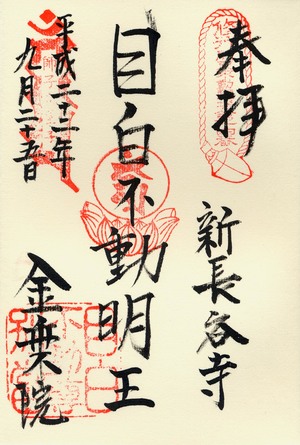 奉拝
新長谷寺
目白不動明王
平成二十二年
九月二十五日
金乗院